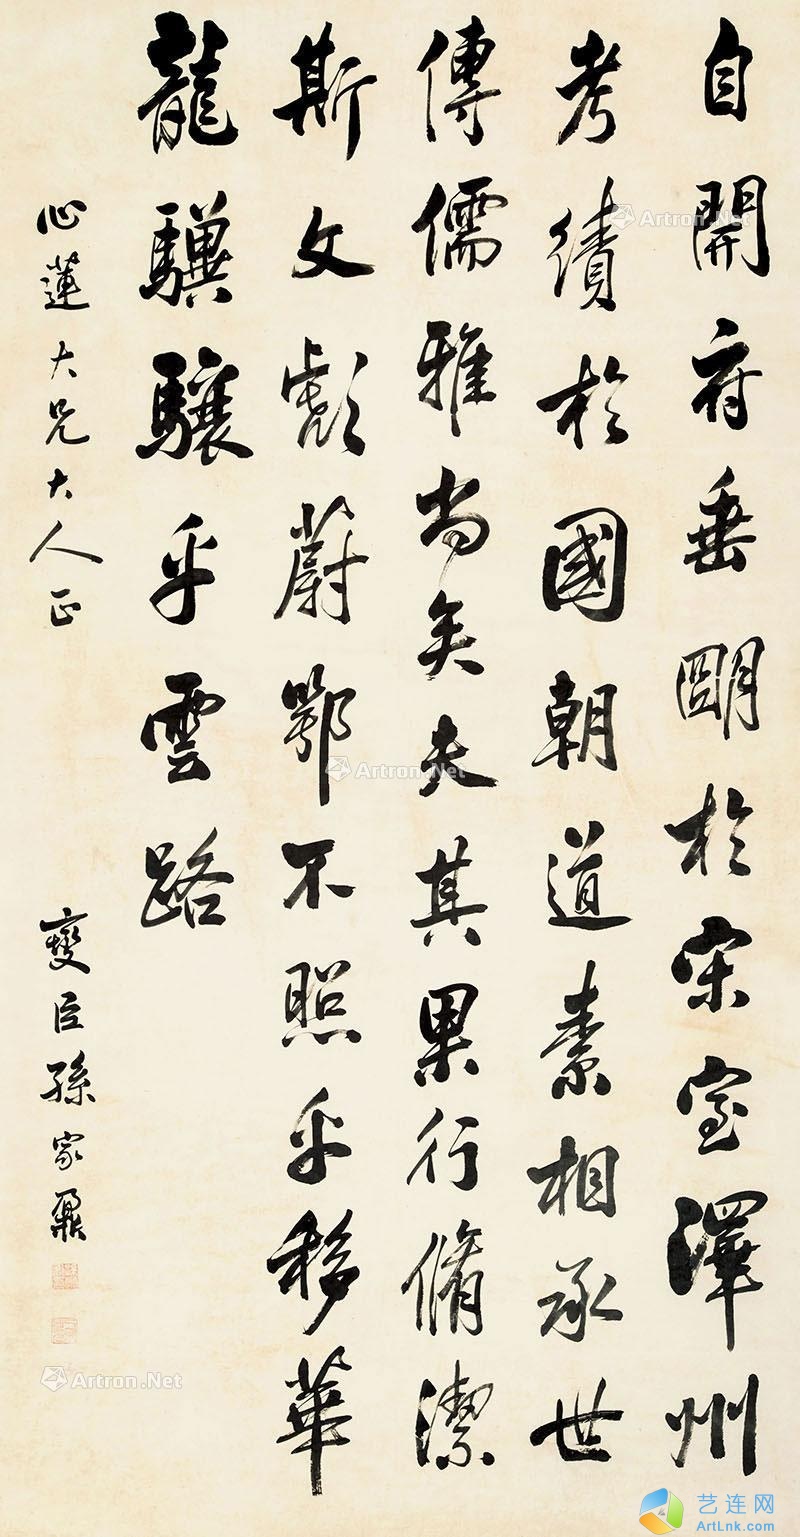 自開府垂朙於宋室澤州
考績於國朝道素相承世
傳儒雅尚矣夫其果行脩潔
斯文彪蔚鄂不照乎移華
龍驥驤乎雲路
心蓮大兄大人正
燮臣孫家鼐
Artron.Net
Artron.Net
Artron.Net
艺连网
ArtLnk.com